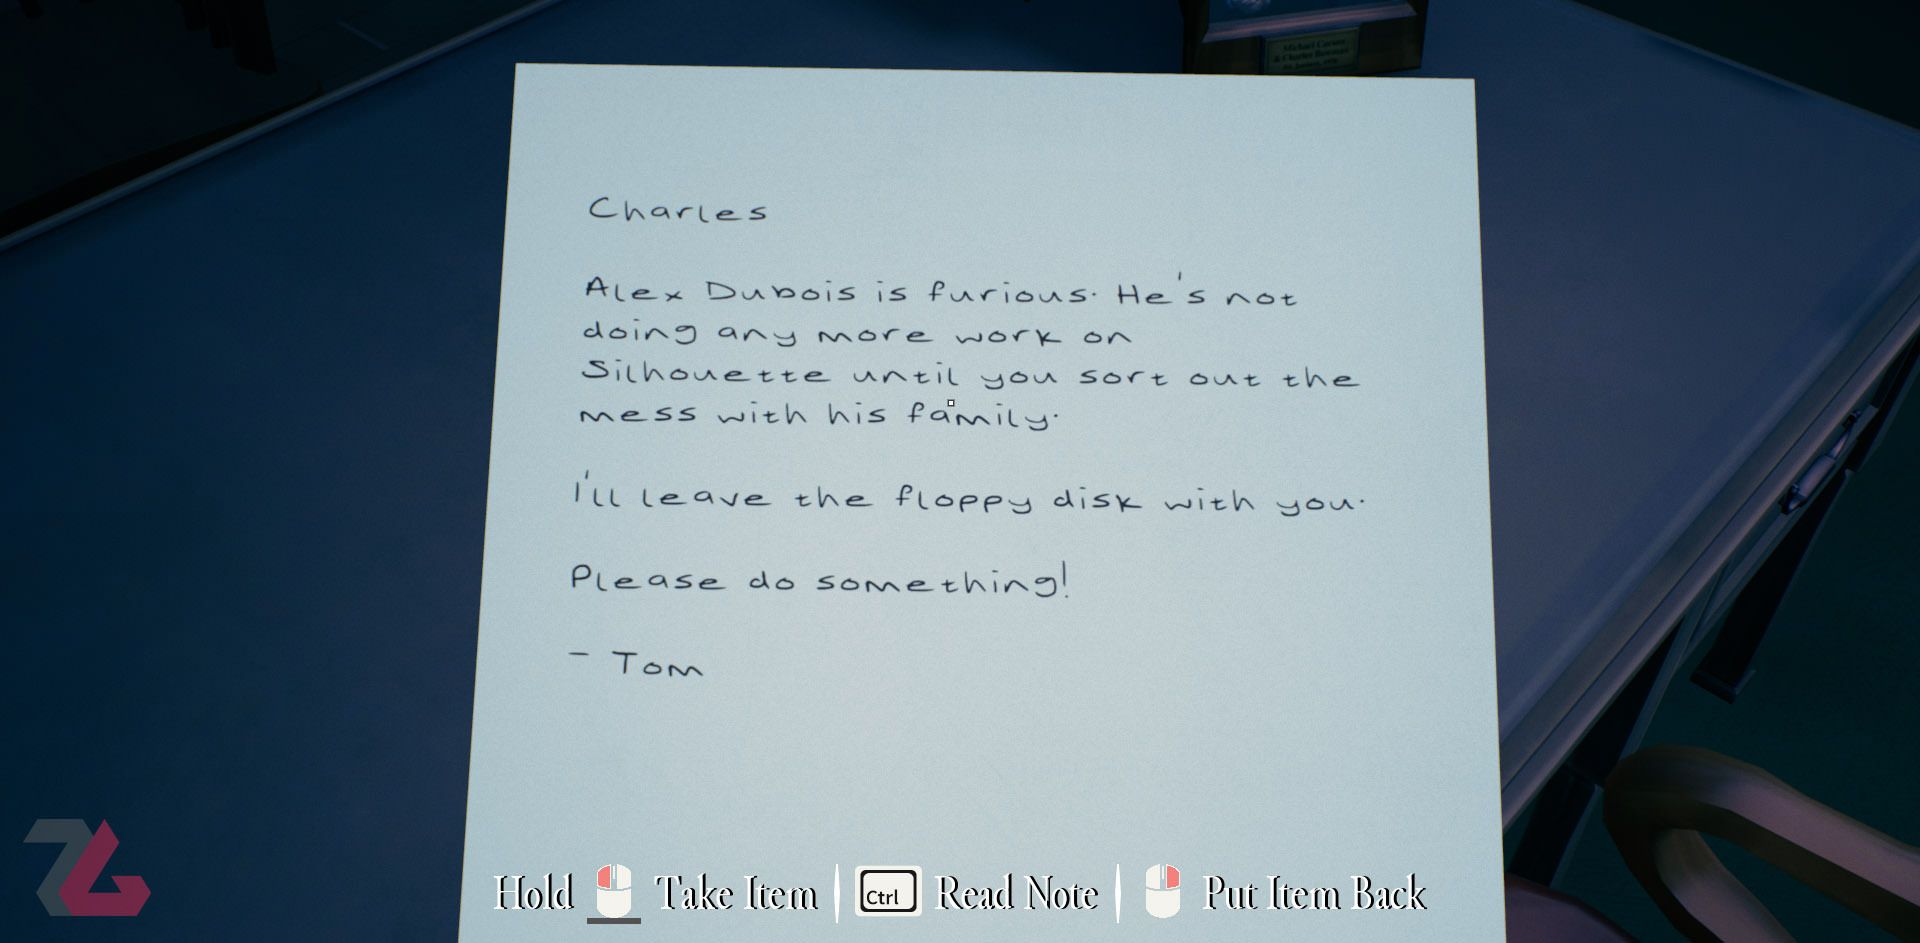 Michael Carson
& Charles Bowman
Charles
Alex Dubois is furious. He's not
doing any more work on
Silhouette until you sort out the
mess with his family.
I'll leave the floppy disk with you.
Please do something!
- Tom
Hold Take Item Ctrl Read Note Put Item Back